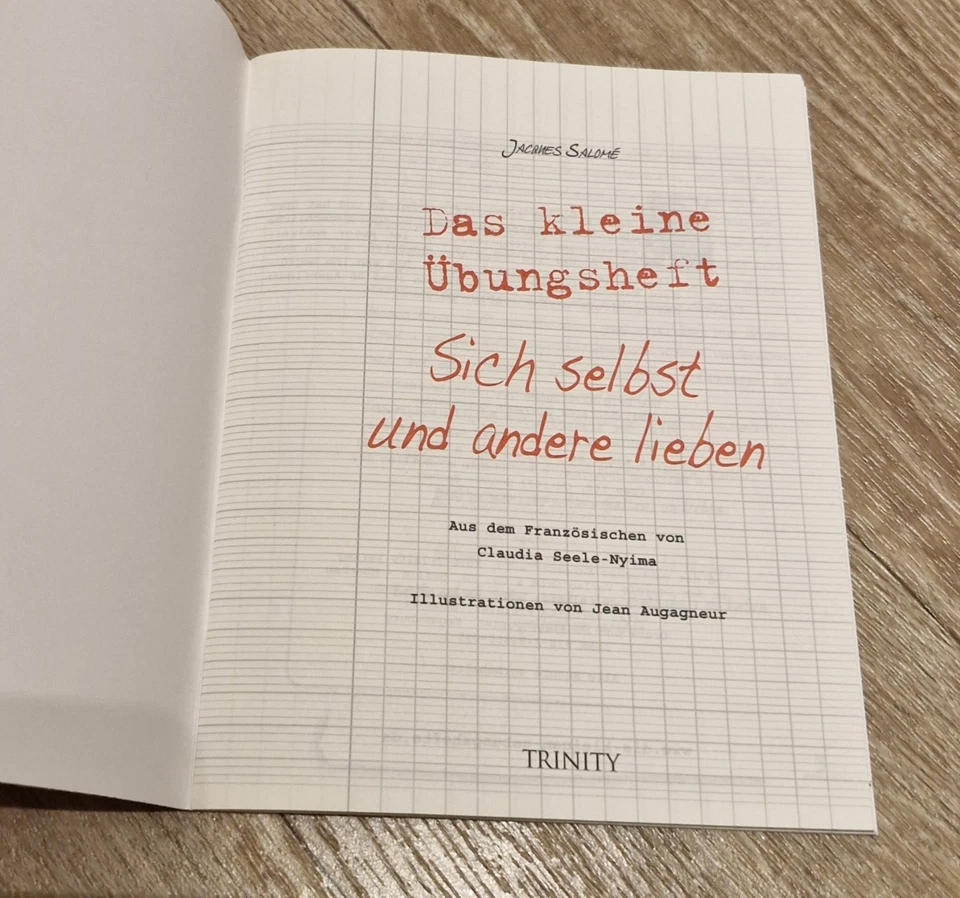 Jacques Salomé
Das kleine
Übungsheft
Sich selbst
und andere lieben
Aus dem Französischen von
Claudia Seele-Nyima
Illustrationen von Jean Augagneur
TRINITY